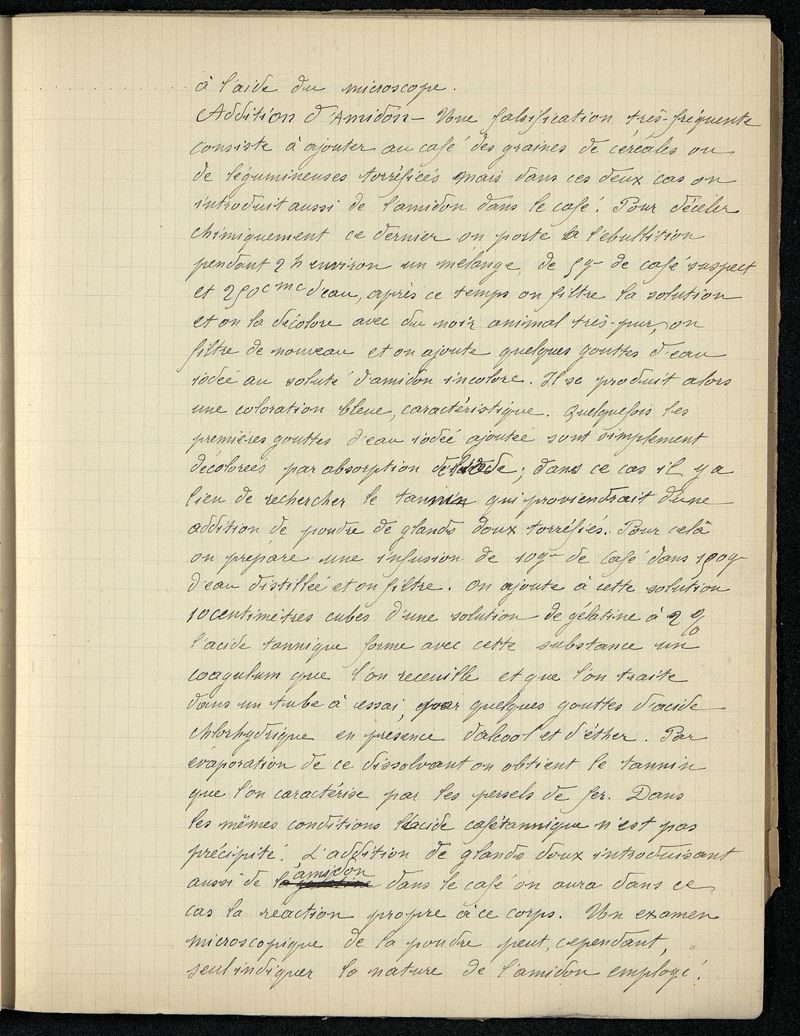 à l'aide du microscope.
Addition d'Amidon - Une falsification très-fréquente
consiste à ajouter au café des graines de céréales ou
de légumineuses torréfiées mais dans ces deux cas on
introduit aussi de l'amidon dans le café. Pour déceler
chimiquement ce dernier on porte à l'ébullition
pendant 2h environ un mélange de 5gr de café suspect
et 250cmc d'eau, après ce temps on filtre la solution
et on la décolore avec du noir animal très-pur, on
filtre de nouveau et on ajoute quelques gouttes d'eau
iodée au soluté d'amidon incolore. Il se produit alors
une coloration bleue, caractéristique. Quelquefois les
premières gouttes d'eau iodée ajoutée sont simplement
décolorées par absorption de l'iode; dans ce cas il y a
lieu de rechercher le tannin qui proviendrait d'une
addition de poudre de glands doux torréfiés. Pour celà
on prépare une infusion de 10gr de café dans 100gr
d'eau distillée et on filtre. On ajoute à cette solution
10 centimètres cubes d'une solution de gélatine à 2%
l'acide tannique forme avec cette substance un
coagulum que l'on receuille et que l'on traite
dans un tube à essai, par quelques gouttes d'acide
chlorhydrique en présence d'alcool et d'éther. Par
évaporation de ce dissolvant on obtient le tannin
que l'on caractérise par les persels de fer. Dans
les mêmes conditions l'acide cafétannique n'est pas
précipité. L'addition de glands doux introduisant
aussi de l'amidon dans le café on aura dans ce
cas la réaction propre à ce corps. Un examen
microscopique de la poudre peut, cependant,
seul indiquer la nature de l'amidon employé.